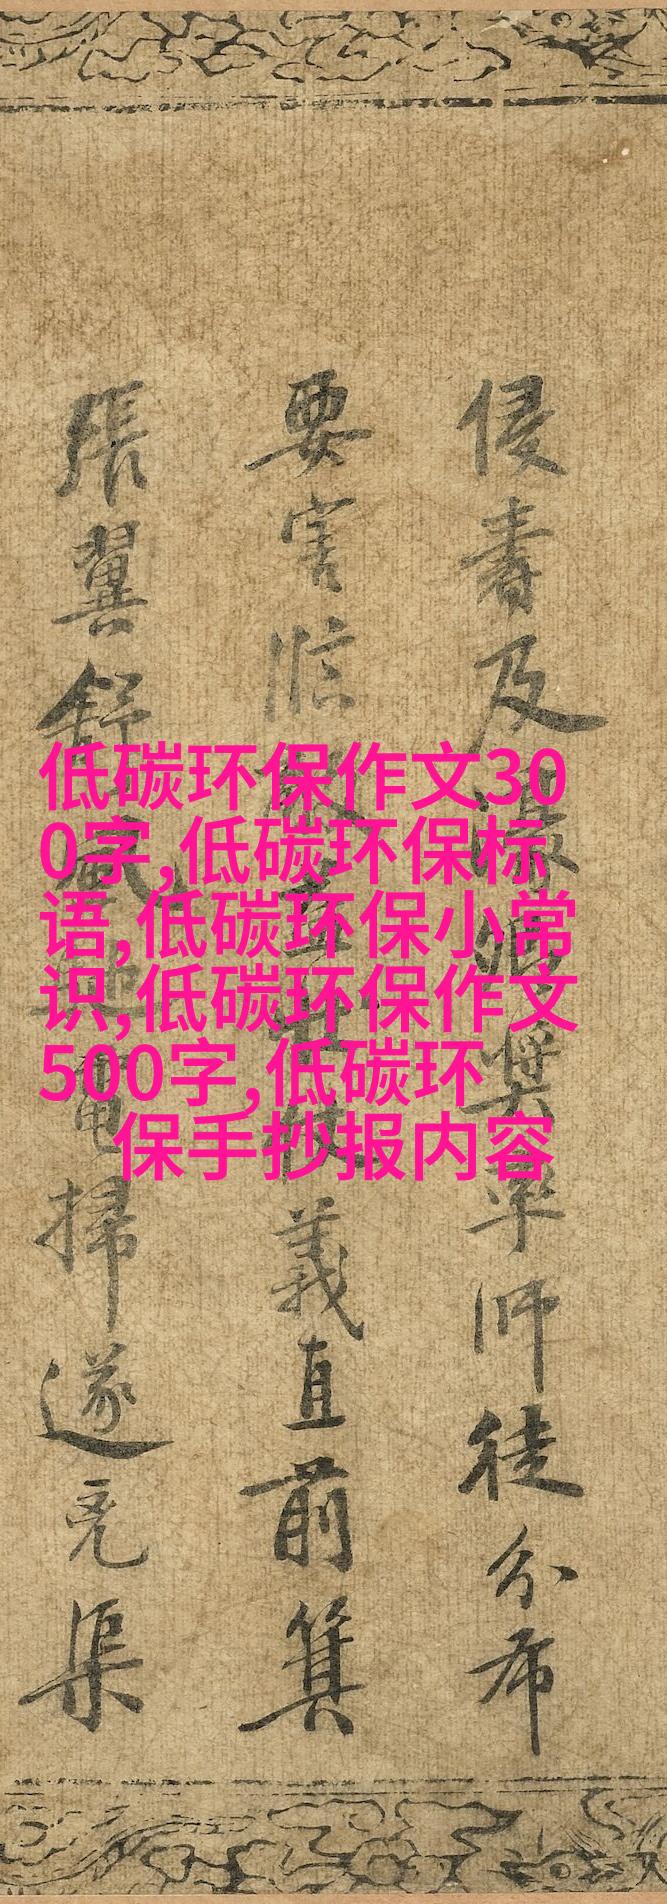 低碳环保作文30
0字,低碳环保标
语,低碳环保小常
识,低碳环保作文
500字,低碳环
保手抄报内容
侵及獎率師徒分布
要害臨義直前箕
張翼舒電掃遂渠